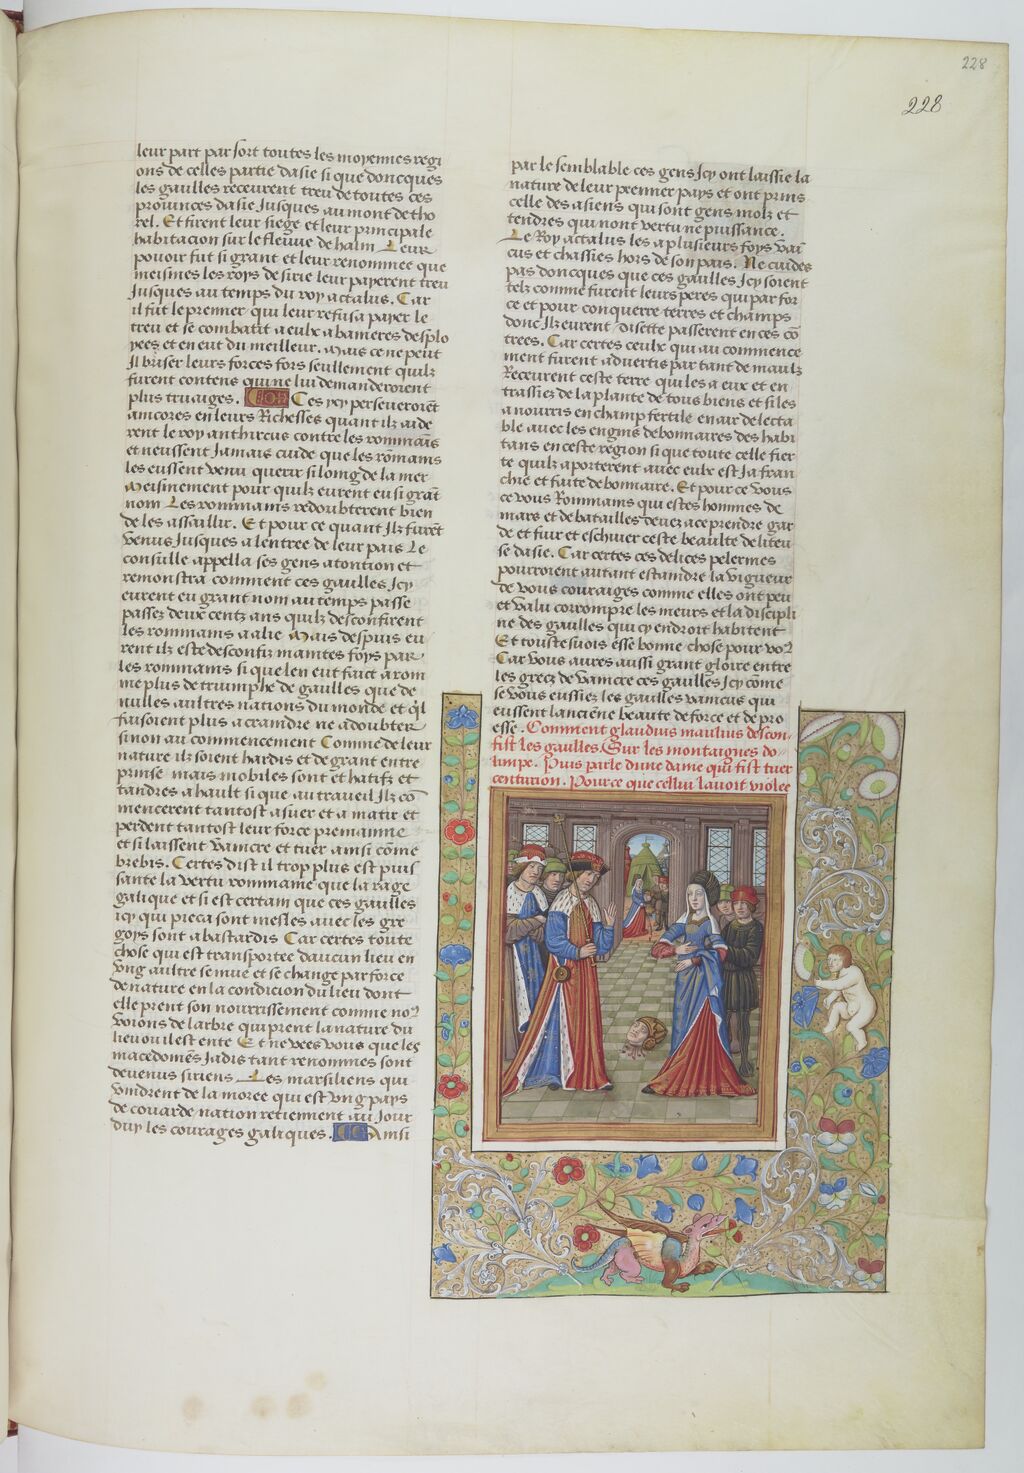 228
228
leur part par sort toutes les moyennes regi
ons de celles partie dasie si que doncques
les gaulles receurent treu de toutes ces
prouinces dasie Jusques au mont de tho
rel. Et firent leur siege et leur principale
habitacion sur le fleuue de halm Leur
pouoir fut si grant et leur renommee que
meismes les roys de sirie leur payerent treu
Jusques au temps du roy actalus. Car
il fut le premier qui leur refusa payer le
treu et se combatit a eulx a banieres desplo
yees et en eut du meilleur. Mais ce ne peut
Il briser leurs forces fors seullement quilz
furent contens qui ne lui demanderoient
plus truaiges. Ces ycy perseueroient
ancores en leurs Richesses quant ilz aide
rent le roy anthircus contre les rommais
et neussent Jamais cuide que les rommains
les eussent venu querir si long de la mer
Meismement pour quilz eurent eu si grat
nom Les rommains redoubterent bien
de les assaillir. Et pour ce quant Ilz furet
venus Jusques a lentree de leur pais Le
consulle appella ses gens atontion et
remonstra comment ces gaulles Icy
eurent eu grant nom au temps passe
passez deux centz ans quilz desconfirent
les rommains a alie Mais despuis eu
rent ilz este desconfiz maintes foys par
les rommains si que len eut faict a rom
me plus de triumphe de gaulles que de
nulles aultres nations du monde et ql
faisoient plus a craindre ne a doubter
sinon au commencement Comme de leur
nature ilz soient hardis et de grant entre
prinse mais mobiles sont et hatifz et
tandres a hault si que au traueil Ilz co
mencerent tantost a suer et a matir et
perdent tantost leur force premainne
et si laissent vaincre et tuer ainsi come
brebis. Certes dist il trop plus est puis
sante la vertu rommaine que la rage
galique et si est certain que ces gaulles
icy qui pieca sont mesles auec les gre
goys sont abastardis Car certes toute
chose qui est transportee daucun lieu en
vng aultre se mue et se change par force
de nature en la condicion du lieu dont
elle prent son nourrissement comme no9
voions de larbre qui prent la nature du
lieu ou il est ente Et ne vees vous que les
macedomes Jadis tant renommes sont
deuenus siriens Les marsiliens qui
vindrent de la moree qui est vng pays
de couarde nation retiennent au Jour
duy les courages galiques. Ainsi
par le semblable ces gens Icy ont laissie la
nature de leur premier pays et ont prins
celle des asiens qui sont gens molz et
tendres qui nont vertu ne puissance.
Le Roy actalus les a plusieurs foys vai
cus et chassies hors de son pais. Ne cuides
pas doncques que ces gaulles Icy soient
telz comme furent leurs peres qui par for
ce et pour conquerre terres et champs
donc Ilz eurent disette passerent en ces co
trees. Car certes ceulx qui au commence
ment furent aduertis par tant de maulx
Receurent ceste terre qui les a eux et en
trassiez de la plante de tous biens et si les
a nourris en champ fertile en air delecta
ble auec les engins debonnaires des habi
tans en ceste region si que toute celle fier
te quilz aporterent auec eulx est Ja fran
chie et faite debonnaire. Et pour ce vous
ce vous Rommains qui estes hommes de
mars et de batailles deuez a ce prendre gar
de et fuir et eschiuer ceste beaulte deliteu
se dasie. Car certes ces delices pelermes
pourroient autant estaindre la vigueur
de vous couraiges comme elles ont peu
et valu corrompre les meurs et la discipli
ne des gaulles qui cy endroit habitent
Et toustesuois esse bonne chose pour vo9
Car vous aures aussi grant gloire entre
les grecz de vaincre ces gaulles Icy come
se vous eussiez les gaulles vaincus qui
eussent lanciene beaute de force et de pro
esse. Comment glaudius maulius descon-
fist les gaulles Sur les montaignes do-
limpe. Puis parle dune dame qui fist tuer
centurion. Pource que cellui lauoit violee